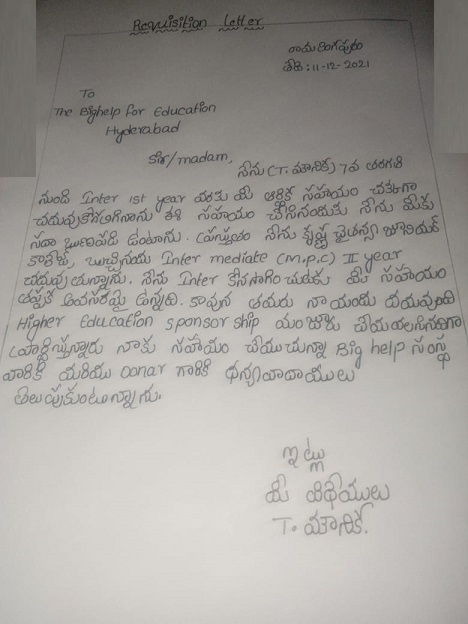 Requisition letter
రామలింగపురం
తేది : 11-12-2021
To
The Bighelp for Education
Hyderabad
Sir/madam,
నేను (T. మౌనిక) 7వ తరగతి
నుండి Inter 1st year వరకు మీ ఆర్థిక సహాయం చక్కగా
చదువుకోగలిగినాను తన సహాయం చేసినందుకు నేను మీకు
సదా ఋణపడి ఉంటాను. ప్రస్తుతం నేను కృష్ణ చైతన్య జూనియర్
కాలేజీ, Inter mediate (m.p.c) II year
చదువుతున్నాను. నేను Inter కొనసాగించుటకు మీ సహాయం
ఎంతైనా అవసరమై ఉన్నది. కావున తమరు నా యందు దయవుంచి
Higher Education sponsor ship మంజూరు చేయవలసినదిగా
ప్రార్థిస్తున్నాను నాకు సహాయం చేయుచున్నా Big help సంస్థ
వారికి మరియు Donar గారికి ధన్యవాదాములు
తెలుపుకుంటున్నాను.
ఇట్లు
మీ విధేయులు
T. మౌనిక.